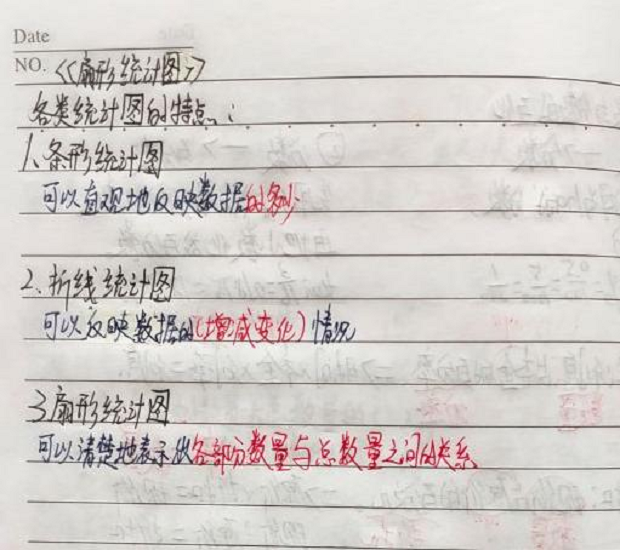 Date
NO. 《扇形统计图》
各类统计图的特点:
1、条形统计图
可以直观地反映数据的多少
2、折线统计图
可以反映数据的(增减变化)情况
3.扇形统计图
可以清楚地表示出各部分数量与总数量之间的关系